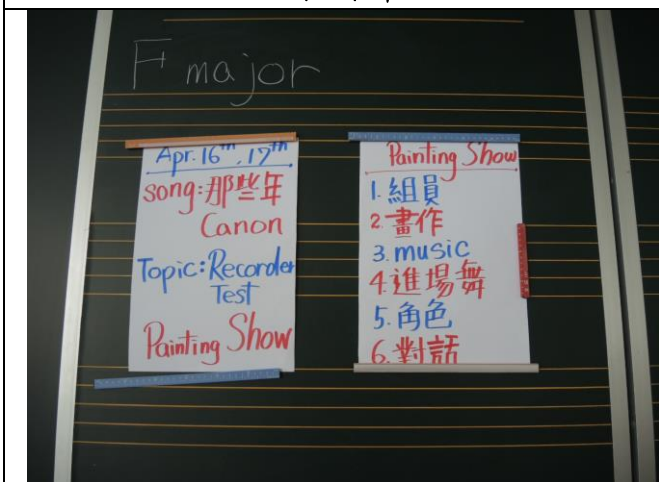 F major
Apr. 16th, 17th
song:那些年
Canon
Topic:Recorder
Test
Painting Show
Painting Show
1.組員
2.畫作
3.music
4.進場舞
5.角色
6.對話